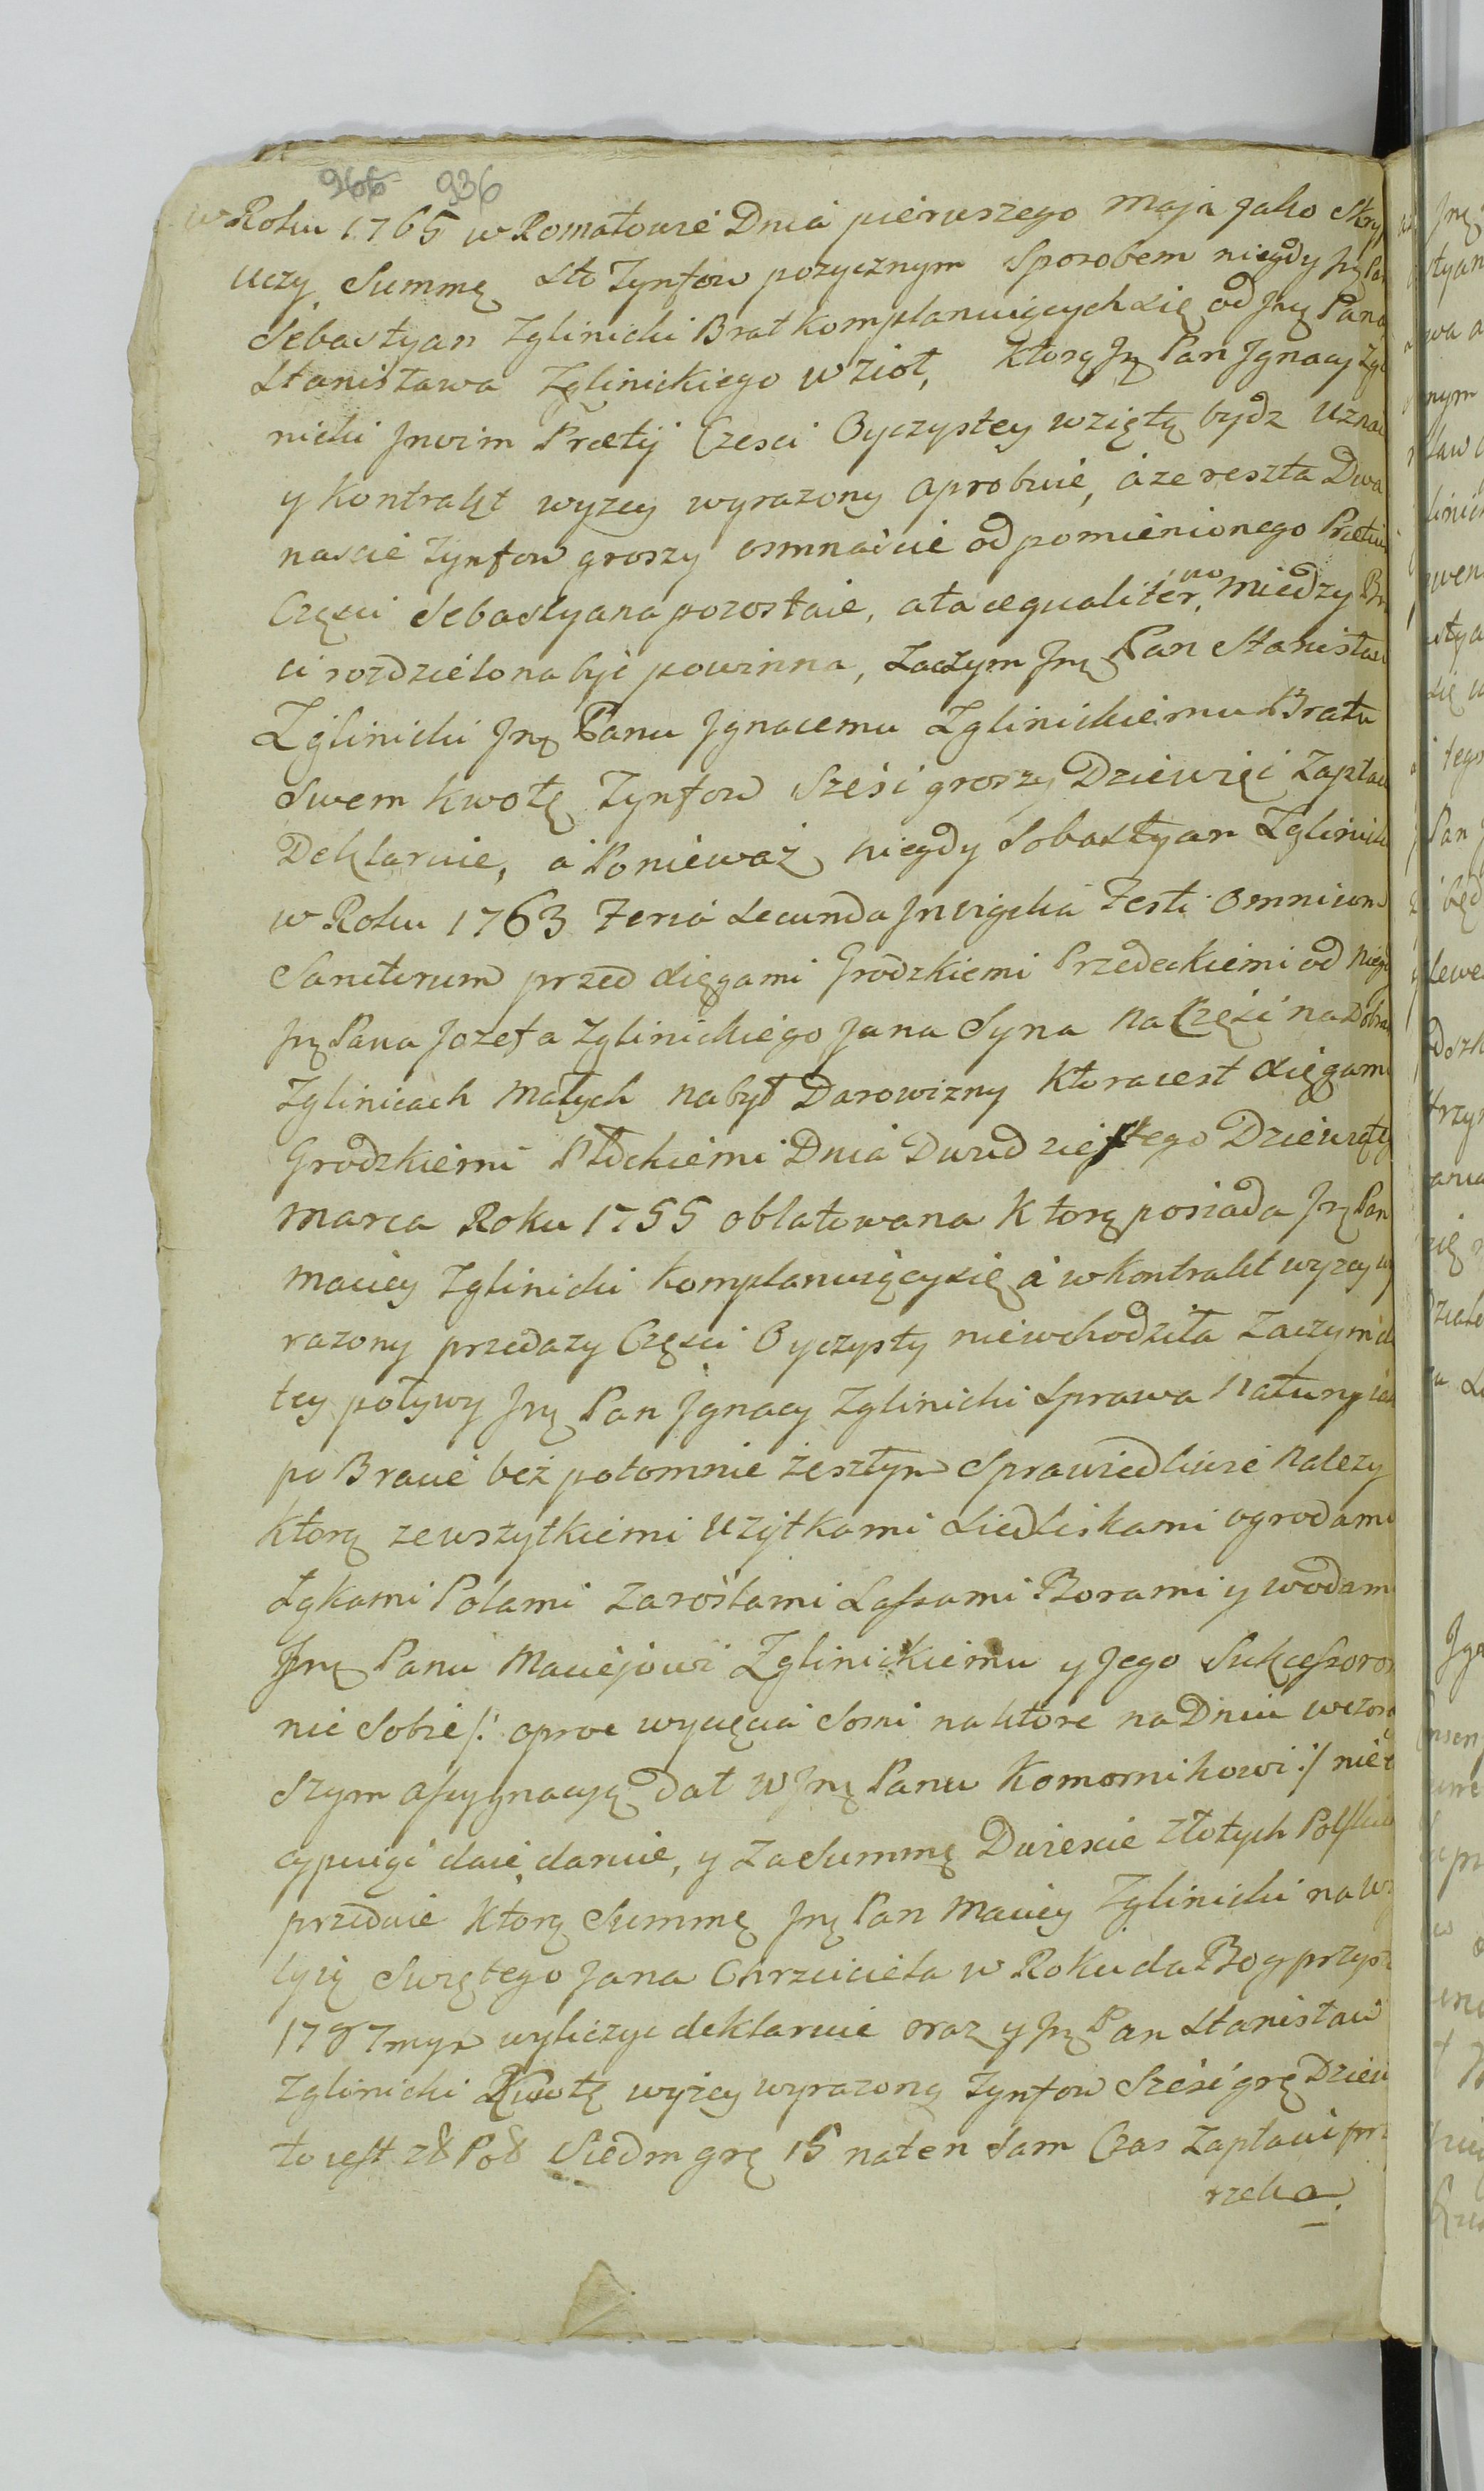 966 936
w Roku 1765 w Romatowie Dnia pierwszego Maja jako Skry
uczy Summę Sto Tynfow pozycznym Sposobem niegdy Jmę Pan
Sebastyan Zglinicki Brat Komplanuiących się od Jmę Pana
Stanisława Zglinickiego wzioł, ktorą Jmę Pan Jgnacy Zgli
nicki Jnvim Prætij Czesci Oyczystey wziętą bydz uznaie
y Kontrakt wyzey wyrazony aprobuie, a ze reszta Dwa
nascie Tynfow groszy osmnaście od pomienionego Prætiu
Części Sebastyana pozostaie, ata æqualiter miedzy Br
ci rozdzielona być powinna, Zaczym Jmę Pan Stanisław
Zglinicki Jmę Panu Jgnacemu Zglinickiemu Bratu
Swem kwotę Tynfow Sześć groszy Dziewięć Zapłac
Deklaruie, a Ponieważ niegdy Sobastyan Zglinick
w Roku 1763 Feria Secunda Jnvigilia Festi Omnium
Sanctorum przed Xięgami Grodzkiemi Przedeckiemi od Niego
Jmę Pana Jozefa Zglinickiego Jana Syna na Część na Dobra
Zglinicach Małych nabył Darowizny ktora iest Xięgami
Grodzkiemi Płockiemi Dnia Dwudziestego Dziewięty
Marca Roku 1755 oblatowana ktorą posiada Jmę Pan
Maciey Zglinicki Komplanuiący się a w Kontrakt wyzey wy
razony przedazy Części Oyczysty niewchodziła Zaczym do
tey poływy Jmę Pan Jgnacy Zglinicki Sprawa Natury iak
po Bracie beż potomnie żeszłym Sprawiedliwie Nalezy
Ktorą zewszytkiemi użytkami Siedliskami ogrodami
Łąkami Polami Zaroślami Lassami Borami y wodami
Jmę Panu Maciejowi Zglinickiemu y Jego Sukcessorom
nic Sobie /: oproc wycięcia Sosni na ktore na Dniu wczora
szym assygnacyą dał W Jmę Panu Komornikowi :/ nie e
cypuiąć daie, daruie, y za Summę Dwiescie Złotych Polskich
przedaie ktorą Summę Jmę Pan Maciey Zglinicki na Wi
lyią Swiętego Jana Chrzciciela w Roku da Bog przysz
1787mym wyliczyc deklaruie oraz y Jmę Pan Stanisław
Zglinicki Kwotę wyżey wyrazoną Tynfow Sześć grę Dziew
to iest zł Pol Siedm grę 15 na ten Sam Czas Zapłacic prz
rzeka